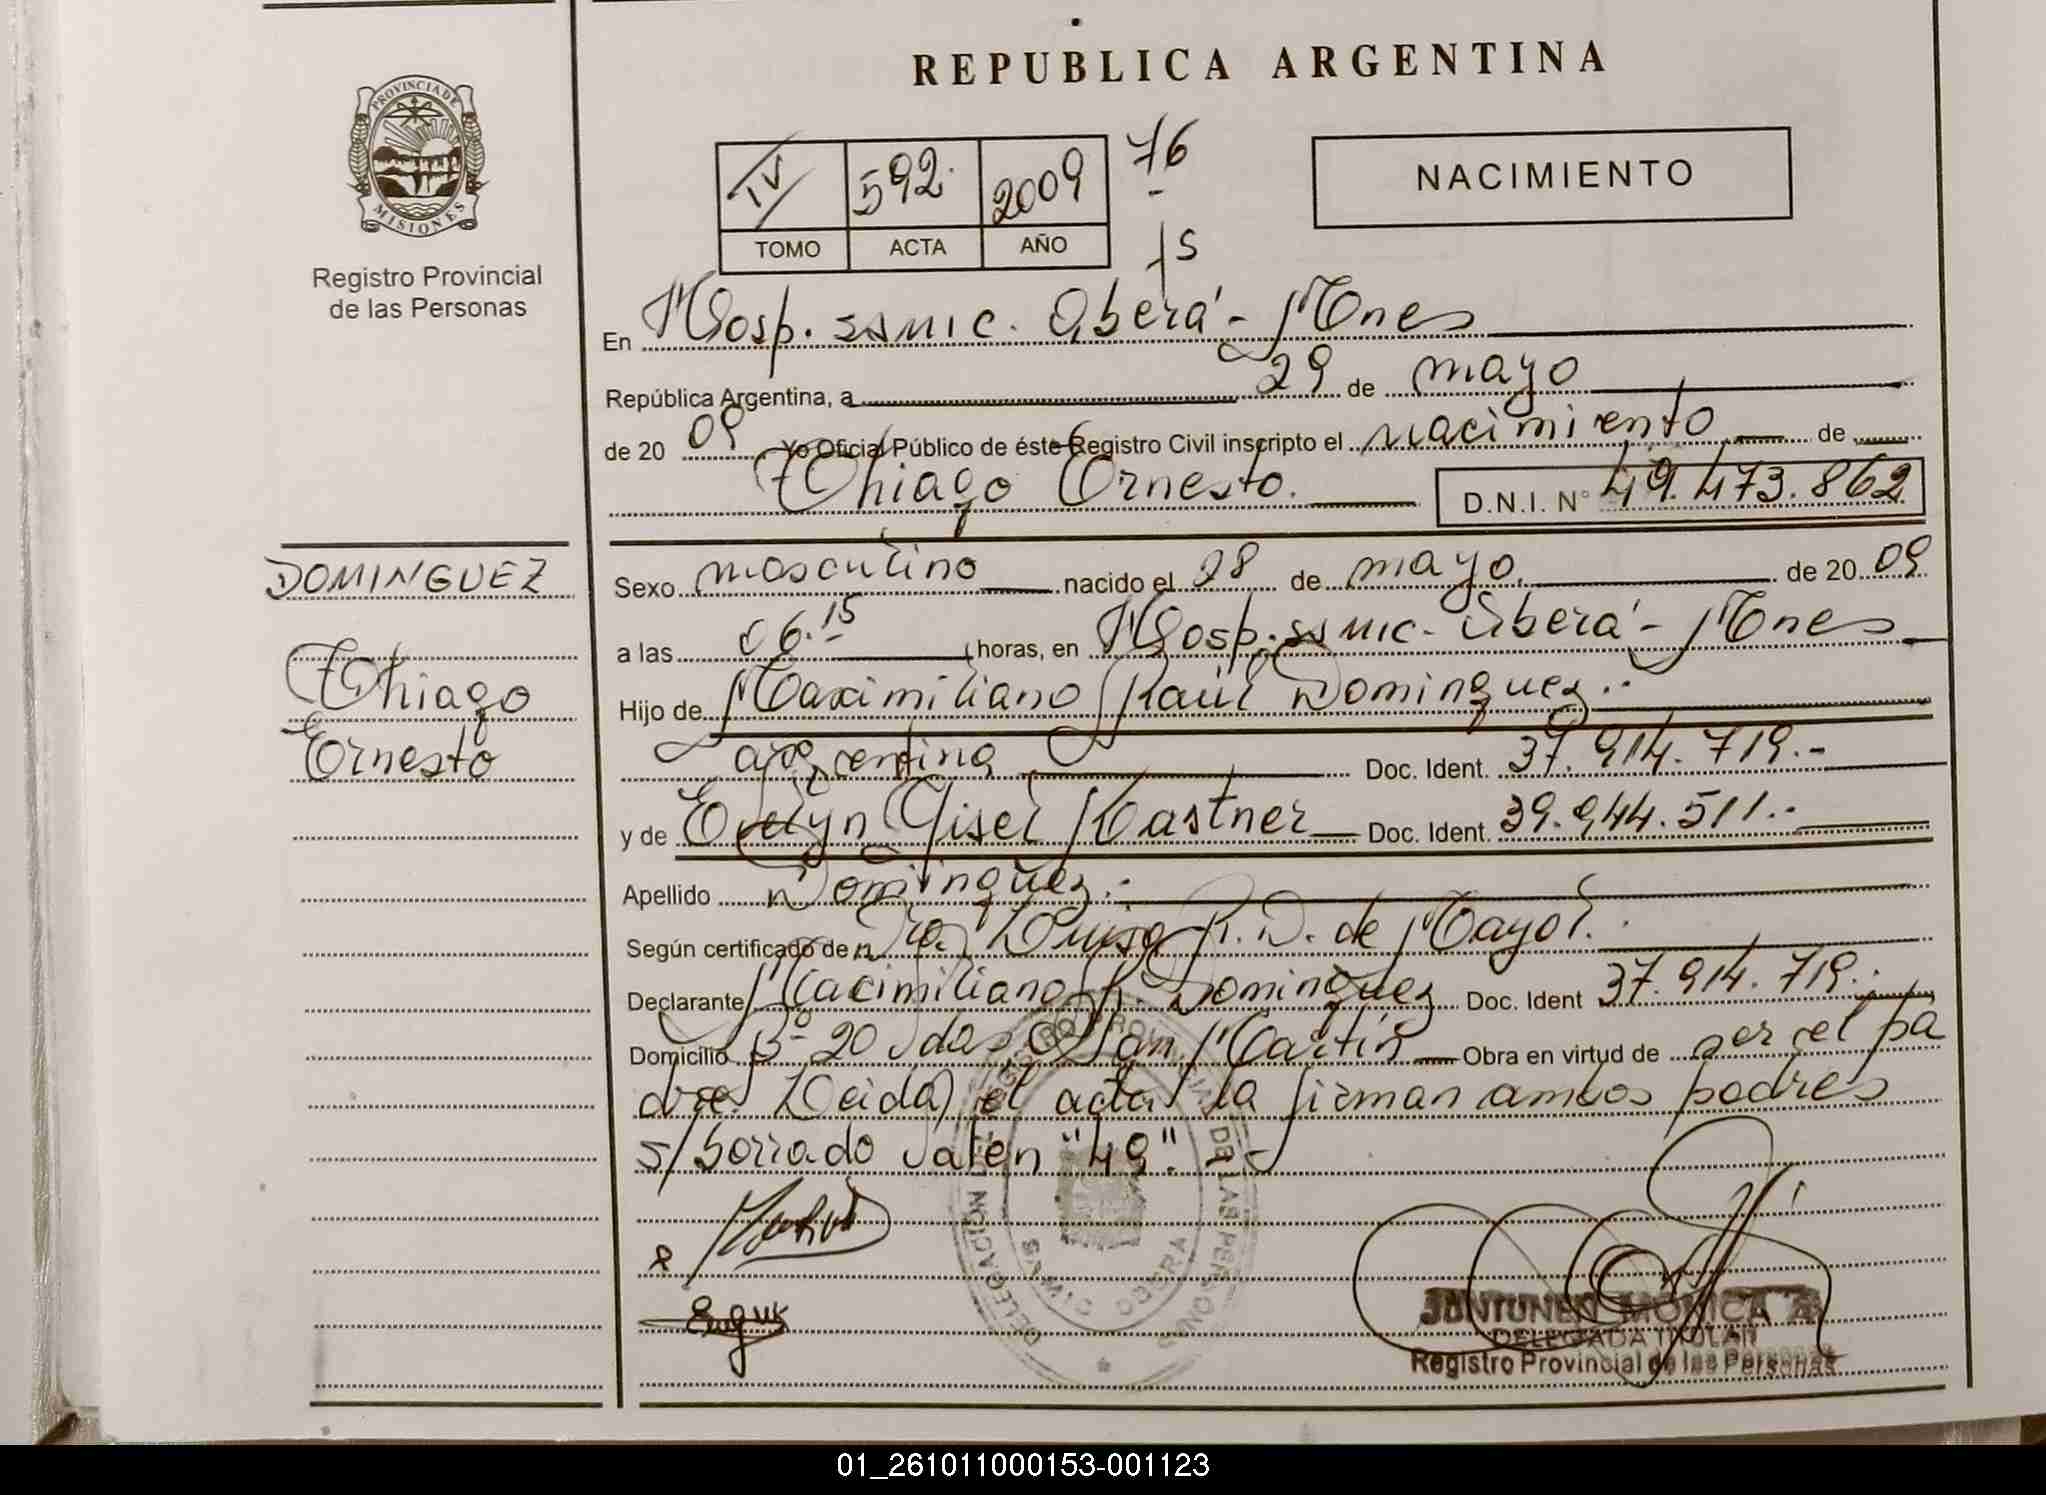 REPUBLICA ARGENTINA
PROVINCIA DE MISIONES
Registro Provincial
de las Personas
IV 592 2009 76
TOMO ACTA AÑO
NACIMIENTO
En Hosp. SSMIC. Oberá - Mnes
República Argentina, a 29 de mayo
de 20 09 Yo Oficial Público de éste Registro Civil inscripto el nacimiento de
Thiago Ernesto. D.N.I. N° 49.473.862
DOMINGUEZ
Thiago
Ernesto
Sexo masculino nacido el 28 de mayo de 20 09
a las 06.15 horas, en Hosp. SSMIC - Oberá - Mnes
Hijo de Maximiliano Raúl Dominguez.-
argentina Doc. Ident. 37.914.719.-
y de Evelyn Gisel Kastner Doc. Ident. 39.944.511.-
Apellido Dominguez.-
Según certificado de Dra. Luisa R. D. de Mayol.
Declarante Macimiliano R. Dominguez Doc. Ident 37.914.719.-
Domicilio B° 20 Vdas. San Martín Obra en virtud de ser el pa
dre. Leida el acta la firman ambos padres
s/borrado valen "49". -
DELEGACION
CIVIL
DE LAS PERSONAS
MONICA A.
DELEGADA TITULAR
Registro Provincial de las Personas
01_261011000153-001123